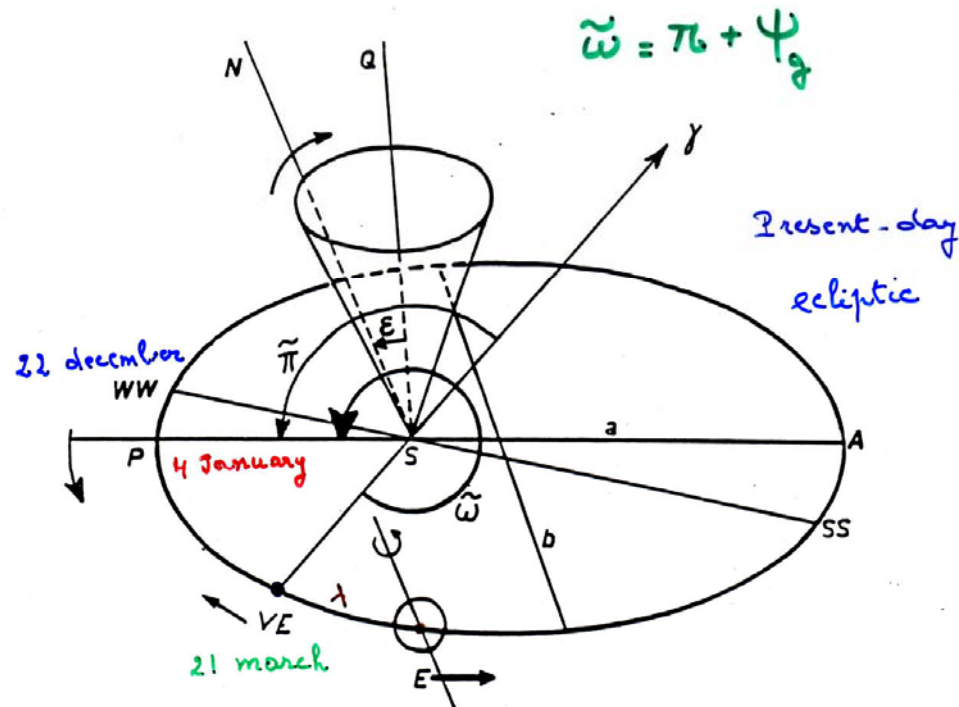 ω̃ = π + Ψg
N
Q
γ
Present-day
ecliptic
ε
π̃
22 december
WW
a
P
S
A
4 January
ω̃
SS
b
λ
VE
21 march
E